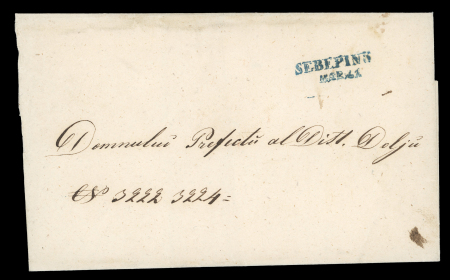 SEBEPINS
MAR 21
Domnului Prefectŭ al Distt. Doljŭ
No 3222 3224=